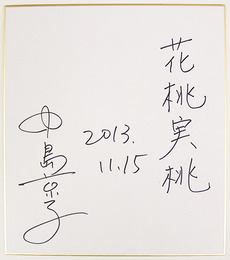 花桃実桃
2013.
11.15
中島京子